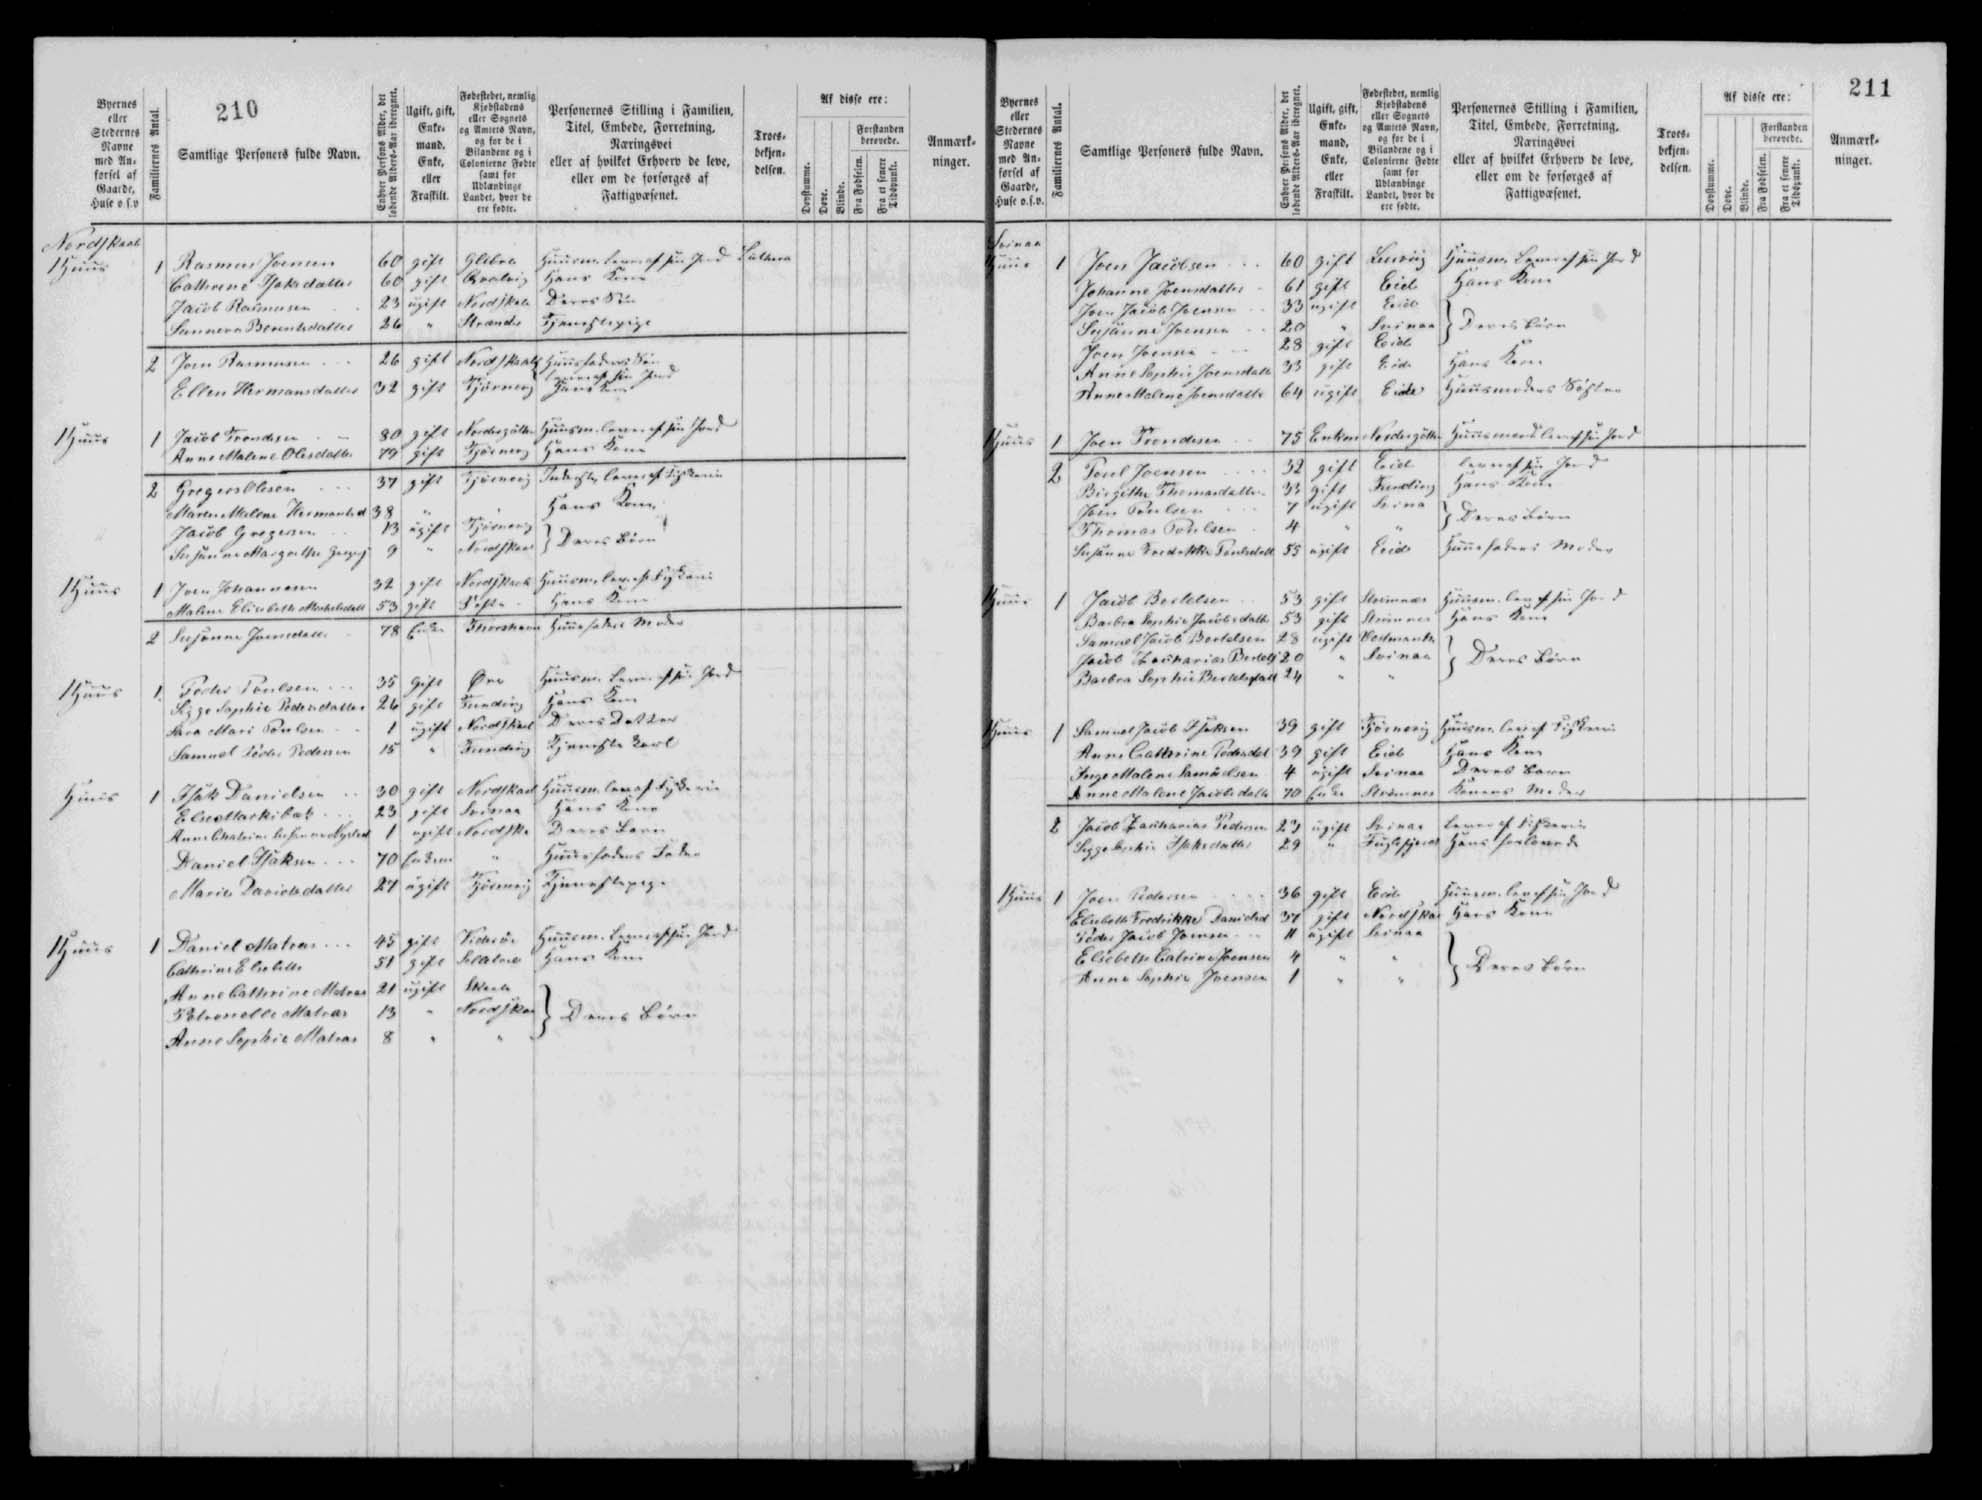 210
Byernes eller Stedernes Navne med Anførsel af Gaarde, Huse o.s.v
Familiernes Antal.
Samtlige Personers fulde Navn.
Enhver Persons Alder, det løbende Alders-Aar iberegnet.
Ugift, gift, Enkemand, Enke, eller Fraskilt.
Fødestedet, nemlig Kjøbstadens eller Sognets og Amtets Navn, og for de i Bilandene og i Colonierne Fødte samt for Udlændinge Landet, hvor de ere fødte.
Personernes Stilling i Familien, Titel, Embede, Forretning, Næringsvei eller af hvilket Erhverv de leve, eller om de forsørges af Fattigvæsenet.
Troesbekjendelsen.
Af disse ere:
Døvstumme.
Døve.
Blinde.
Forstanden berøvede.
Fra Fødselen.
Fra et senere Tidspunkt.
Anmærkninger.
Nordskaale
1 Huus 1 Rasmus Joensen 60 gift Huusm. lever af sin Jord
Cathrine Isaksdatter 60 gift Hans Kone
Jacob Rasmusen 23 ugift Nordskale Deres Søn
Sunneva Berentsdatter 26 " Strender Tjenestepige
2 Joen Rasmusen 26 gift Nordskaale Huusfaders Søn lever af sin Jord
Ellen Hermansdatter 32 gift Tjørnevig Hans Kone
1 Huus 1 Jacob Trondesen 80 gift Nordregøthe Huusm. lever af sin Jord
Anne Malene Olesdatter 79 gift Tjørnevig Hans Kone
2 Gregers Olesen 37 gift Tjørnevig Inderste, lever af Fiskerie
Maren Malene Hermansd 38 " " Hans Kone
Jacob Gregersen 13 ugift Tjørnevig } Deres Børn
Susanne Margrethe Gregers 9 " Nordskaal
1 Huus 1 Joen Johannesen 32 gift Nordskaale Huusm. lever af Fiskerie
Malene Elisabeth 53 gift Hans Kone
2 Susanne Joensdatter 78 Enke Thorshavn Huusfaders Moder
1 Huus 1 Peder Poulsen 35 Gift Øre Huusm. lever af sin Jord
Sigge Sophie Pedersdatter 26 gift Funding Hans Kone
Sara Mari Poulsen 1 ugift Nordskaal Deres Datter
Samuel Peder Pedersen 15 " Funding Tjeneste Karl
Huus 1 Isak Danielsen 30 gift Nordskaal Huusm. lever af Fiskerie
Else 23 gift Svinaa Hans Kone
1 ugift Nordska Deres Barn
Daniel Isaksen 70 Enkem " Huusfaders Fader
Marie Davidsdatter 27 ugift Tjørnevig Tjenestepige
1 Huus 1 Daniel Matras 45 gift Viderøe Huusm. lever af sin Jord
Cathrine Elsebeth 51 gift Hans Kone
Anne Cathrine Matras 21 ugift } Deres Børn
Petronelle Matras 13 " Nordskaa
Anne Sophie Matras 8 " "
211
Byernes eller Stedernes Navne med Anførsel af Gaarde, Huse o.s.v.
Familiernes Antal.
Samtlige Personers fulde Navn.
Enhver Persons Alder, det løbende Alders-Aar iberegnet.
Ugift, gift, Enkemand, Enke, eller Fraskilt.
Fødestedet, nemlig Kjøbstadens eller Sognets og Amtets Navn, og for de i Bilandene og i Colonierne Fødte samt for Udlændinge Landet, hvor de ere fødte.
Personernes Stilling i Familien, Titel, Embede, Forretning, Næringsvei eller af hvilket Erhverv de leve, eller om de forsørges af Fattigvæsenet.
Troesbekjendelsen.
Af disse ere:
Døvstumme.
Døve.
Blinde.
Forstanden berøvede.
Fra Fødselen.
Fra et senere Tidspunkt.
Anmærkninger.
Svinaa
1 Huus 1 Joen Jacobsen 60 gift Huusm. lever af sin Jord
Johanne Joensdatter 61 gift Eide Hans Kone
Joen Jacob Joensen 33 ugift Eide } Deres Børn
Susanne Joensen 20 " Svinaa
Joen Joensen 28 gift Eide
Anne Sophie Joensdatt 33 gift Eide Hans Kone
Anne Malene Joensdatter 64 ugift Eide Huusmoders Søster
1 Huus 1 Joen Trondesen 75 Enkem Nordregøthe Huusmand lever af sin Jord
2 Poul Joensen 32 gift Eide lever af sin Jord
Birgithe Thomasdatter 33 gift Funding Hans Kone
Joen Poulsen 7 ugift Svina } Deres Børn
Thomas Poulsen 4 " "
Susanne Fredrikke Poulsdatt 55 ugift Eide Huusfaders Moder
1 Huus 1 Jacob Bertelsen 53 gift Strømnes Huusm. lever af sin Jord
Barbra Sophie Jacobsdatter 53 gift Strømnes Hans Kone
Samuel Jacob Bertelsen 28 ugift Vestmanha } Deres Børn
Jacob Zacharias Bertels 20 " Svinaa
Barbra Sophie Bertelsdatt 24 " "
1 Huus 1 Samuel Jacob Isaksen 39 gift Tjørnevig Huusm. lever af Fiskerie
Anne Cathrine Pedersdat 39 gift Eide Hans Kone
Inge Malene Samuelsen 4 ugift Svinaa Deres Barn
Anne Malene Jacobsdatter 70 Enke Strømnes Konens Moder
2 Jacob Zacharias Pedersen 23 ugift Svinaa lever af Fiskerie
Sigge Sophie Isaksdatter 29 " Fuglefjord Hans forlovede
1 Huus 1 Joen Pedersen 36 gift Eide Huusm. lever af sin Jord
Elsebeth Fredrikke Danielsd 37 gift Nordskaa Hans Kone
Peder Jacob Joensen 11 ugift Svinaa } Deres Børn
Elsebeth Catrine Joensen 4 " "
Anne Sophie Joensen 1 " "